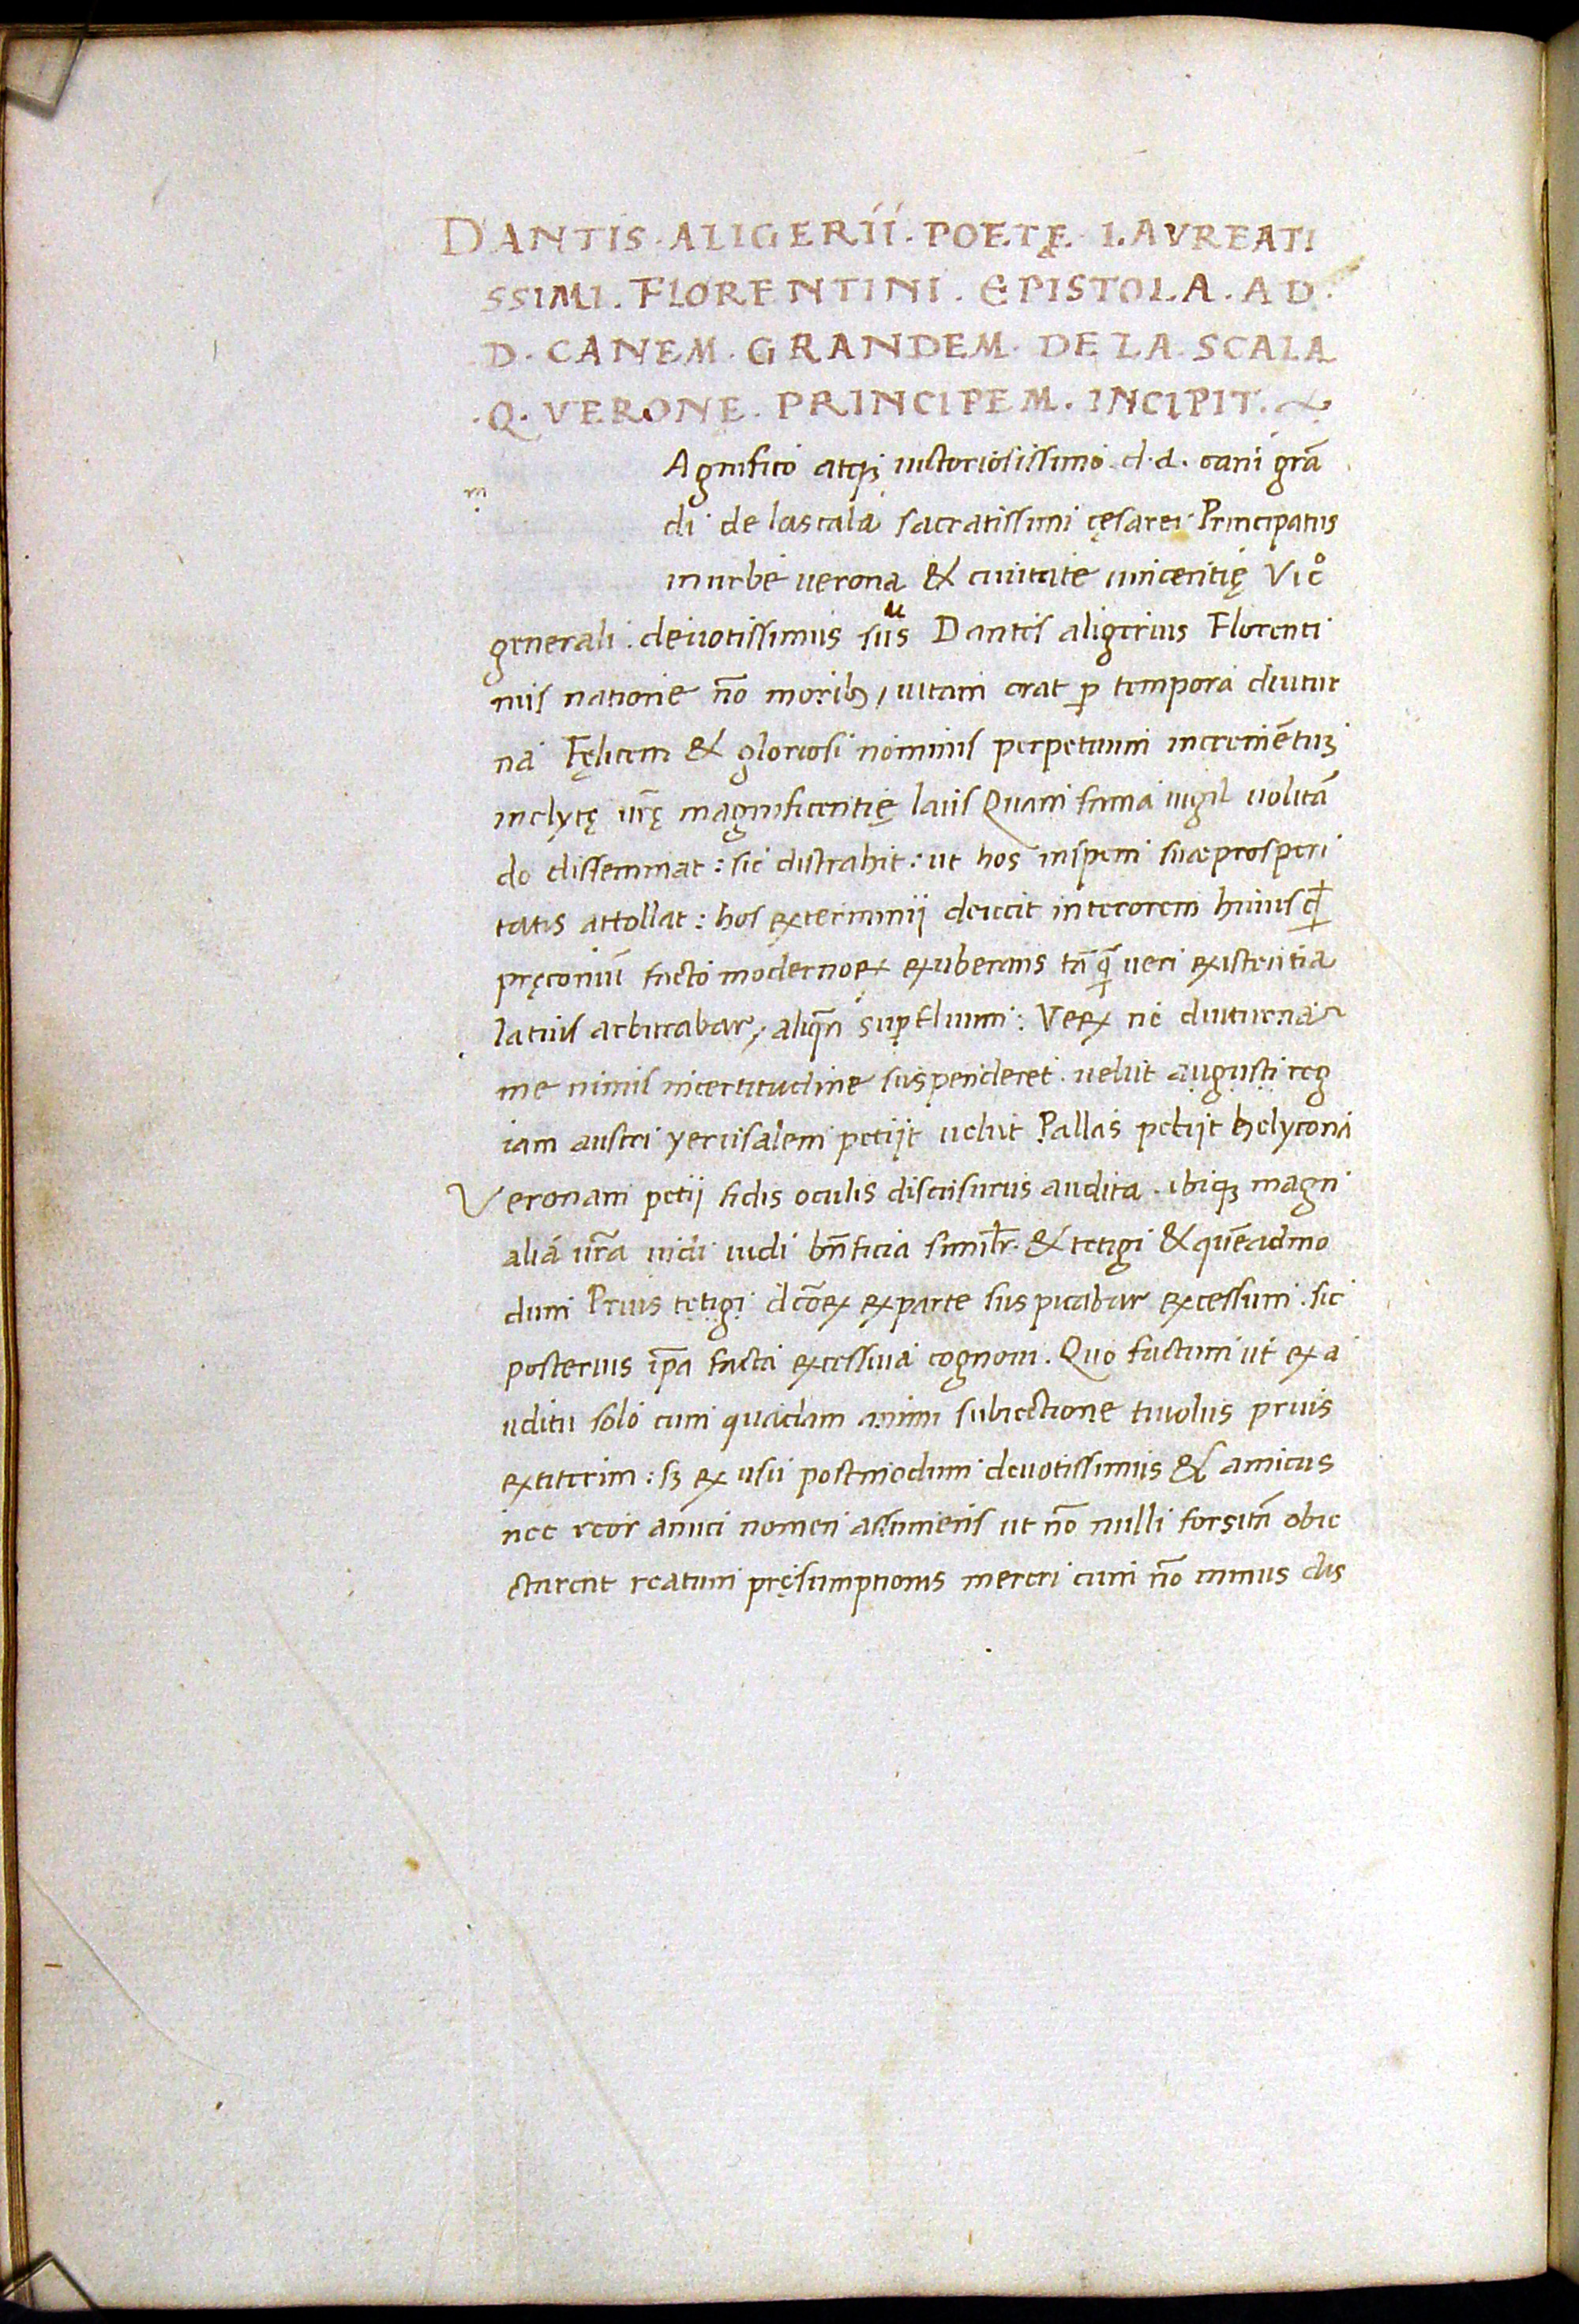 DANTIS · ALIGERII · POETĘ · LAVREATI
SSIMI . FLORENTINI . EPISTOLA . AD .
D . CANEM . GRANDEM . DE LA . SCALA
· Q . VERONE . PRINCIPEM . INCIPIT .
m
Agnifico atqꝫ uictoriosissimo . d . d . cani grā
di de lascala sacratissimi cęsarei Principatus
in urbe uerona & ciuitate uincentię Vic̊
generali . deuotissimus suus Dantes aligerius Florenti
nus natione nō moribꝫ, uitam orat ꝑ tempora diutur
na Fęlicem & gloriosi nominis perpetuum incremētuꝫ
inclytę ur̄ę magnificentię laus Quam fama uigil uolitā
do disseminat : sic distrahit : ut hos in spem suae prosperi
tatis attollat : hos exterminij deiecit in terorem huius qͥdem
pręconiū facto modernoꝝ exuberans tāꝗ̄ ueri existentia
latius arbitrabar, aliqn̄ suꝑfluum : Veꝝ ne diuturna
me nimis incertitudine suspenderet . uelut augusti reg
iam austri yerusalem petijt uelut Pallas petijt helycona
Veronam petij fidis oculis discusurus audita . ibiqꝫ magn
alia ur̄a uidi uidi bn̄ficia similr̄ . & tetigi & quēadmo
dum Prius tetigi dcōꝝ ex parte suspicabar excessum . sic
posterius ip̄a facta excessiua cognoui . Quo factum ut ex a
uditu solo cum quadam animi subiectione tiuolus prius
extiterim : sꝫ ex usu postmodum deuotissimus & amicus
nec reor amici nomen assumens ut nō nulli forsitā obie
ctarent reatum pręsumptionis mereri cum nō minus dis